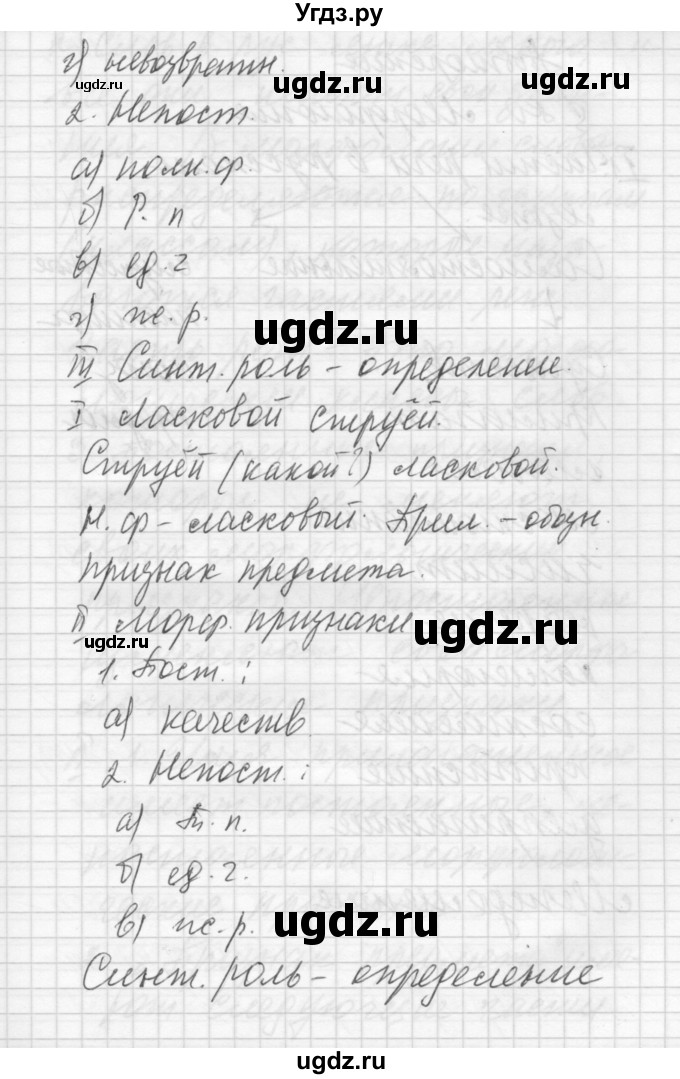 Угдз.ру
г) невозвратн.
ugdz.ru ugdz.ru
2. Непост.
а) полн. ф.
б) Р. п
в) ед. ч
г) ж. р.
ugdz.ru
III Синт. роль – определение.
I Ласковой струёй.
Струёй (какой?) ласковой.
Н. ф – ласковый. Прил. – обозн.
признак предмета.
II Морф. признаки
ugdz.ru ugdz.ru
1. Пост. :
а) качеств.
2. Непост. :
а) Т. п.
б) ед. ч.
в) ж. р.
ugdz.ru
Синт. роль – определение
ugdz.ru